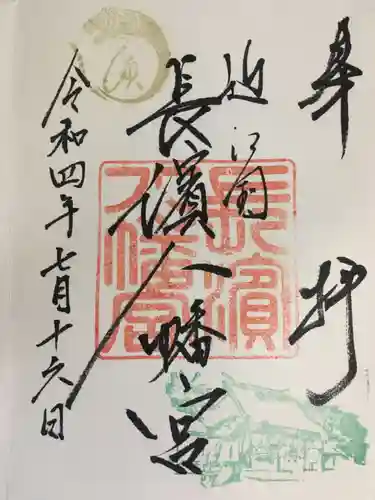 奉拝
近江國
長濱八幡宮
令和四年七月十六日
長濱八幡宮